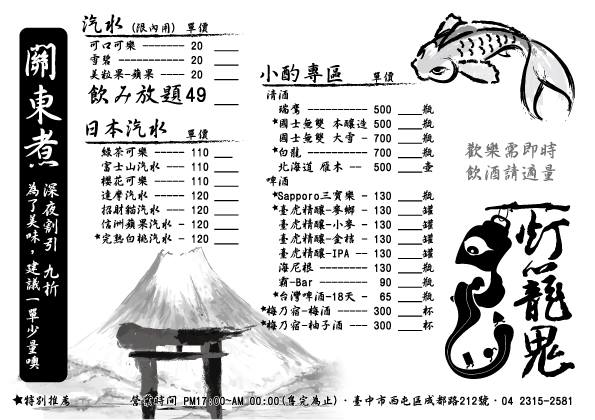 關東煮
深夜割引 九折
為了美味，建議一單少量噢
汽水 (限內用) 單價
可口可樂 ------- 20 ___
雪碧 ----------- 20 ___
美粒果-蘋果 ---- 20 ___
飲み放題49 ___
日本汽水 單價
綠茶可樂 ------ 110 ___
富士山汽水 --- 110 ___
櫻花可樂 ------ 110 ___
達摩汽水 ----- 120 ___
招財貓汽水 --- 120 ___
信洲蘋果汽水 - 120 ___
*完熟白桃汽水 - 120 ___
小酌專區 單價
清酒
瑞鷹 ---------- 500 ___瓶
*國士無雙 本釀造 500 ___瓶
國士無雙 大雪 - 700 ___瓶
*白龍 ---------- 700 ___瓶
北海道 雁木 -- 500 ___壺
啤酒
*Sapporo三寶樂 - 130 ___瓶
*臺虎精釀-麥鄉 - 130 ___罐
臺虎精釀-小麥 - 130 ___罐
臺虎精釀-金桔 - 130 ___罐
臺虎精釀-IPA -- 130 ___罐
海尼根 --------- 130 ___瓶
霸-Bar --------- 90 ___瓶
*台灣啤酒-18天 - 65 ___瓶
*梅乃宿-梅酒 ----- 300 ___杯
*梅乃宿-柚子酒 --- 300 ___杯
歡樂需即時
飲酒請適量
灯籠鬼
★特別推薦 營業時間 PM17:00~AM 00:00(售完為止)·臺中市西屯區成都路212號·04 2315-2581